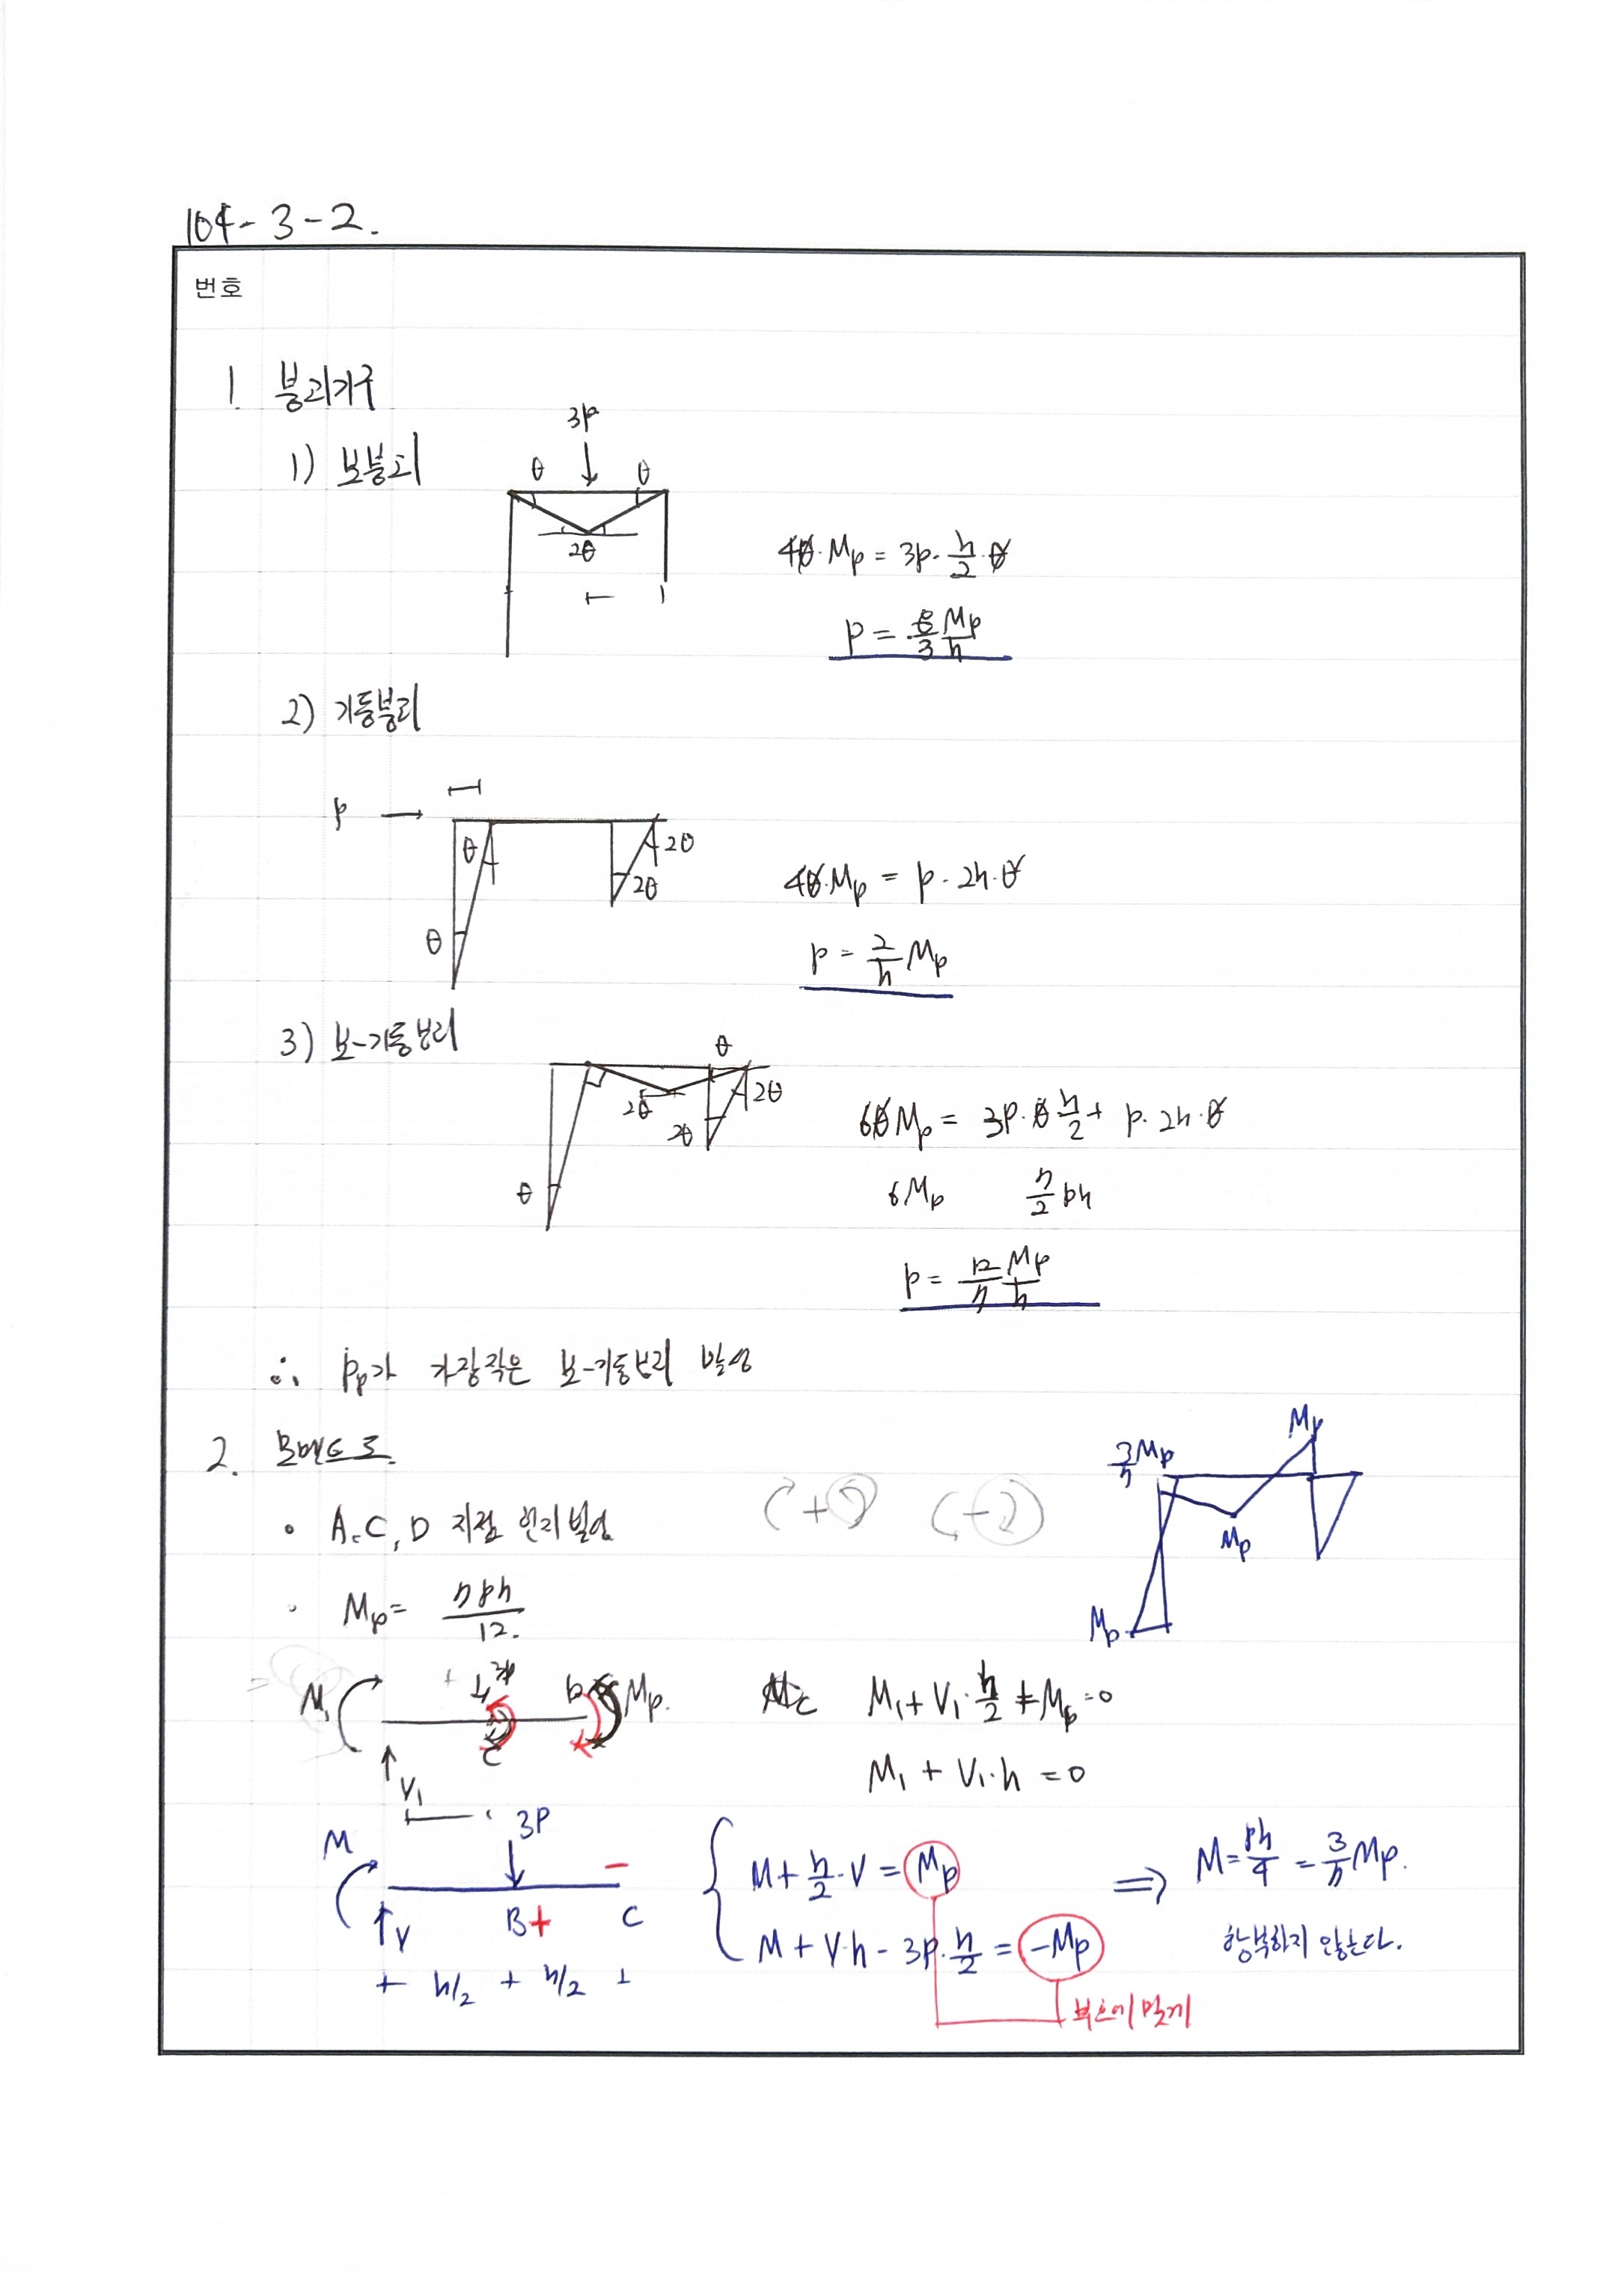 104-3-2.
번호
1. 붕괴기구
1) 보붕괴
3P
θ θ
2θ
4θ·Mp = 3P·h/2·θ
P = 8/3 Mp/h
2) 기둥붕괴
P →
θ 2θ
θ 2θ
4θ·Mp = P·2h·θ
P = 2/h Mp
3) 보-기둥붕괴
θ
2θ 2θ
2θ
θ
6θMp = 3P·θ h/2 + P·2h·θ
6Mp 7/2 Ph
P = 12/7 Mp/h
∴ Pp가 가장작은 보-기둥붕괴 발생
2. 모멘트도
3/7 Mp Mp
Mp
Mp
• A, C, D 지점 힌지 발생
• Mp = 7Ph/12.
M1 3P D Mp.
C
V1
Mc M1 + V1·h/2 + Mp = 0
M1 + V1·h = 0
M 3P −
V B + C
+ h/2 + h/2 +
M + h/2·V = Mp
M + V·h − 3P·h/2 = −Mp
⇒ M = Ph/4 = 3/7 Mp.
항복하지 않는다.
부호에 맞게